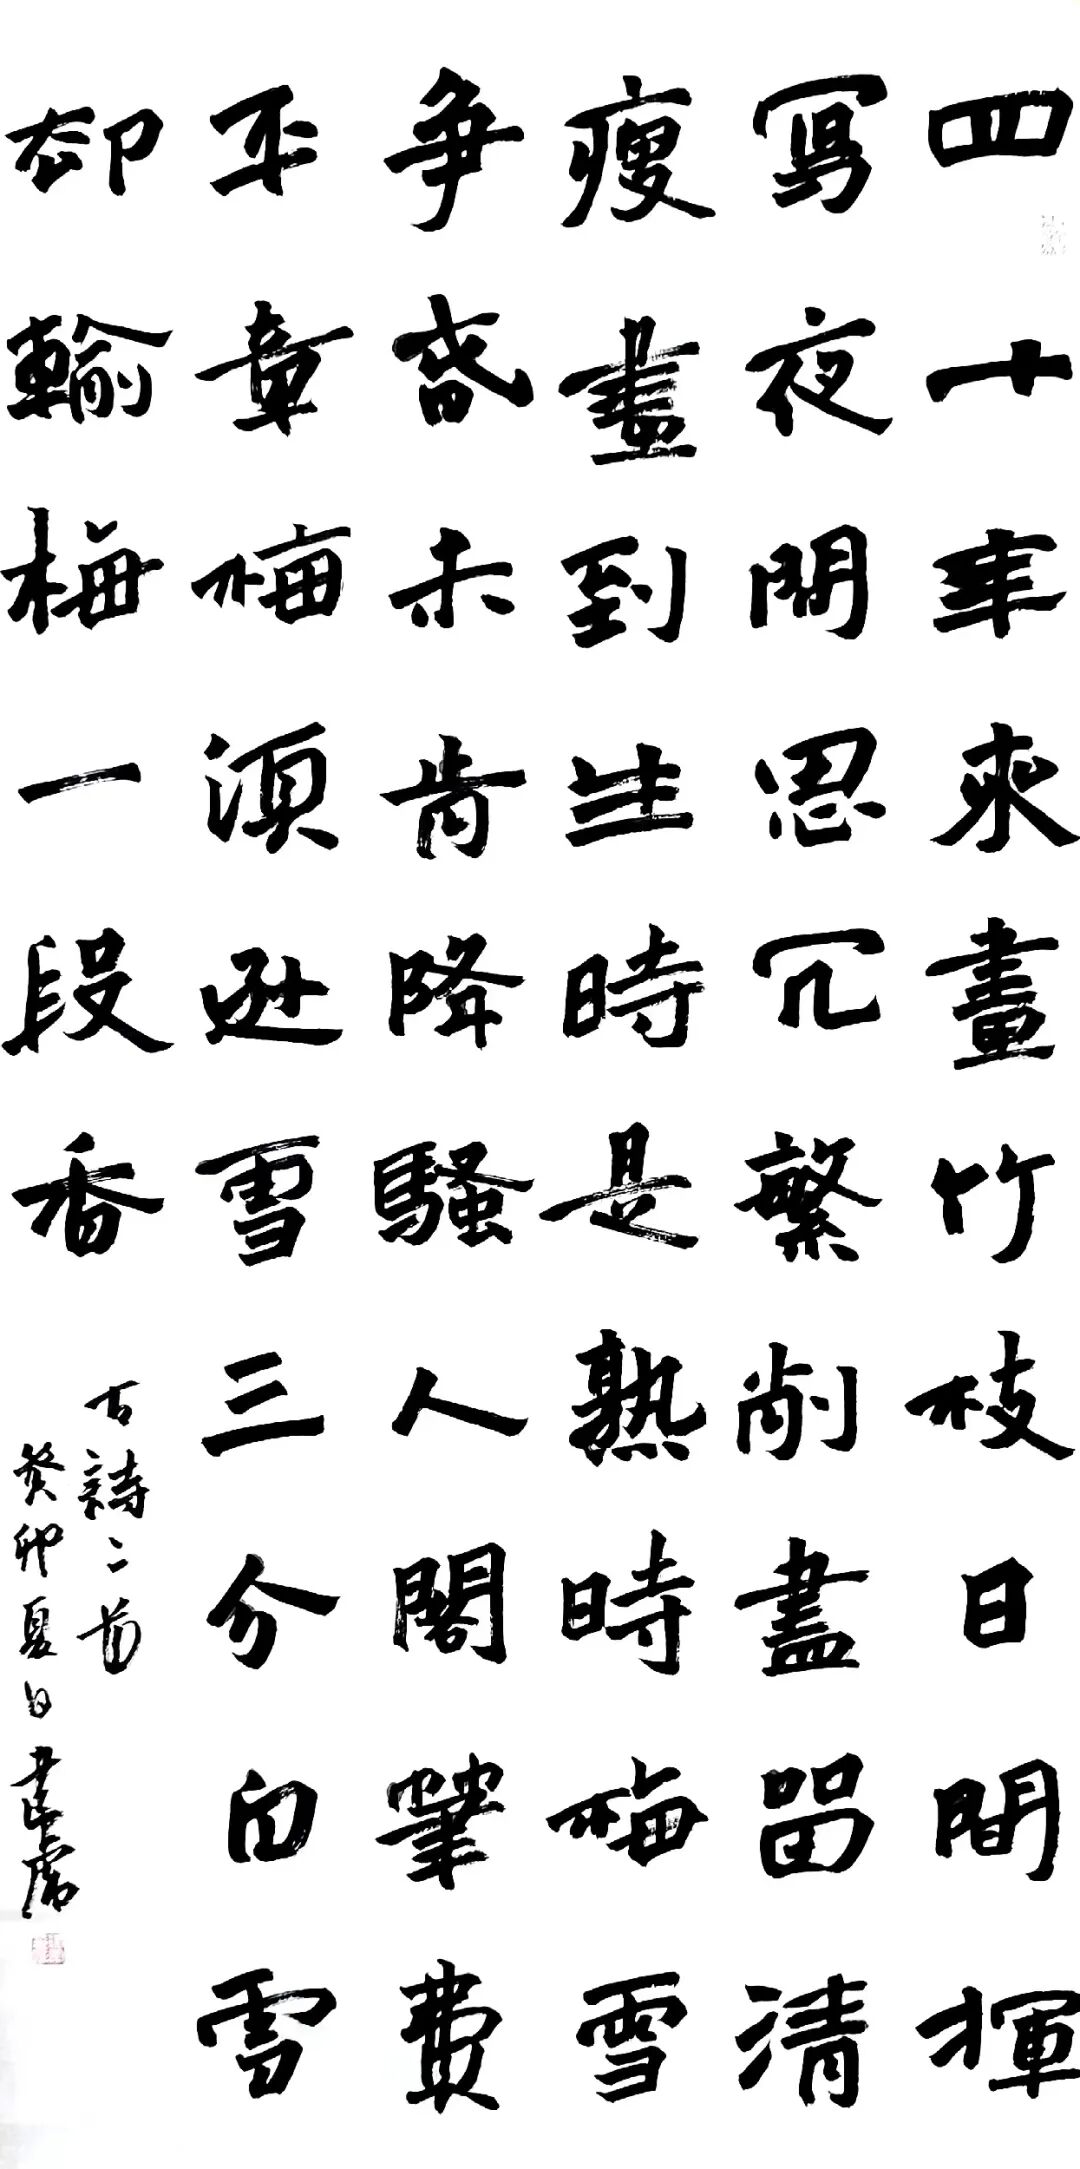 四十年來畫竹枝日間揮
寫夜間思冗繁削盡留清
瘦畫到生時是熟時梅雪
争春未肯降騷人閣筆費
平章梅須遜雪三分白雪
却輸梅一段香
古詩二首
癸卯夏日